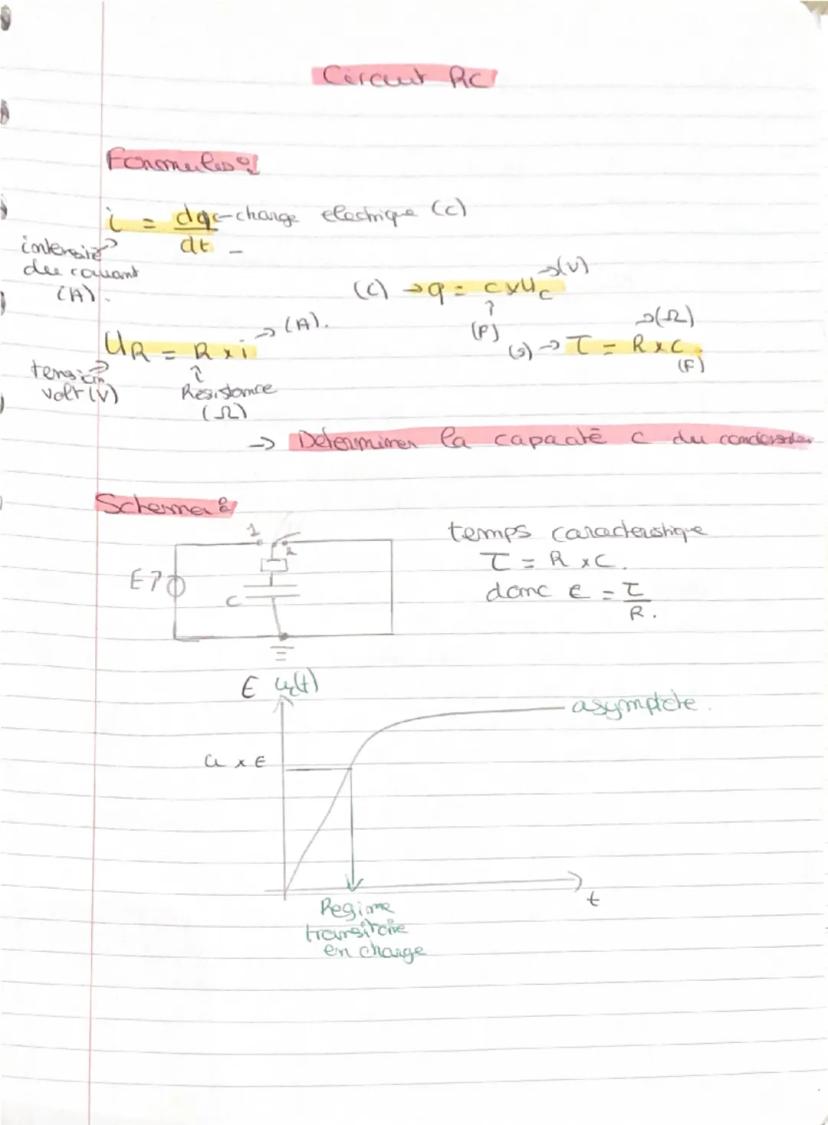 Circuit RC
Formules :
i = dq/dt ← charge electrique (C)
intensité du courant (A).
(C) → q = C x Uc → (V)
(F)
UR = R x i → (A).
tension volt (V)
Résistance (Ω)
(s) → τ = R x C → (Ω)
(F)
→ Déterminer la capacité C du condensateur
Schema :
1
2
E ?
C
temps caracteristique
τ = R x C.
donc C = τ/R.
E uc(t)
asymptote.
x E
t
Regime
transitoire
en charge